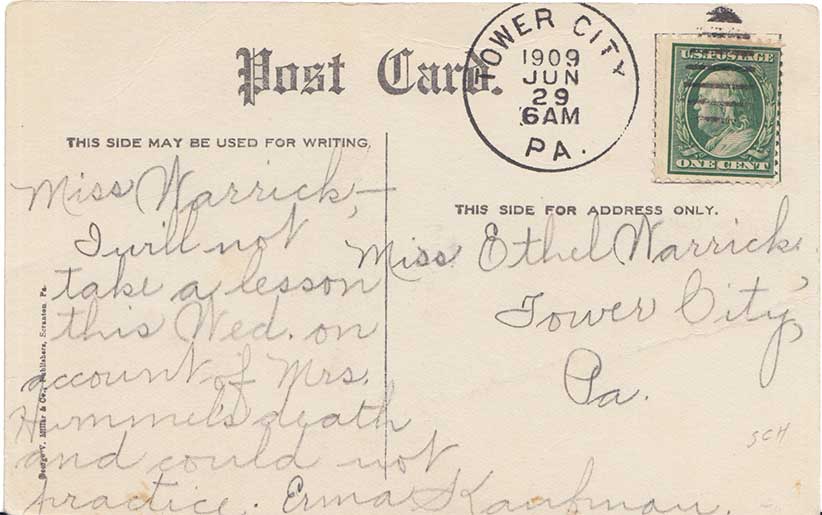 Post Card.
TOWER CITY
1909
JUN
29
6AM
PA.
U.S. POSTAGE
ONE CENT
THIS SIDE MAY BE USED FOR WRITING.
THIS SIDE FOR ADDRESS ONLY.
Miss Warrick,—
I will not
take a lesson
this Wed. on
account of Mrs.
Hummels death
and could not
practice. Erma Kaufman.
Miss Ethel Warrick
Tower City,
Pa.
SCH
George V. Millar & Co., Publishers, Scranton, Pa.